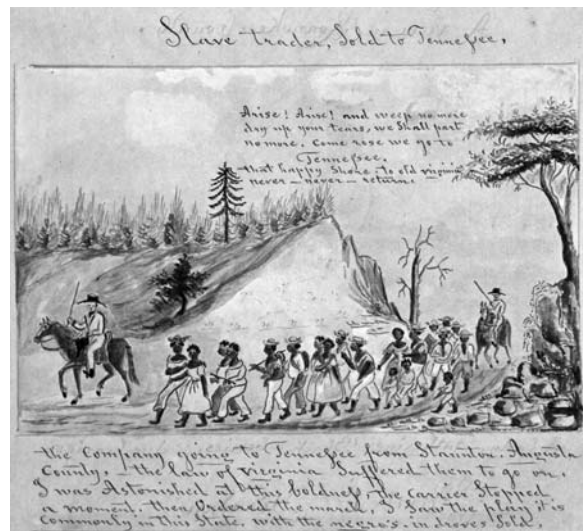 Slave trader, Sold to Tennessee,
Arise! Arise! and weep no more
dry up your tears, we Shall part
no more, Come rose we go to
Tennessee,
that happy Shore, to old virginia
never — never — return.
the Company going to Tennessee from Staunton, Augusta
County, the law of virginia Suffered them to go on.
I was Astonished at this boldness, the carrier Stopped
a moment, then Ordered the march, I Saw the play it is
Commonly in this State, with the negro's in droves Sold.